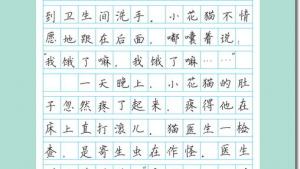 到卫生间洗手。小花猫不情
愿地跟在后面,嘟囔着说:
"我饿了嘛,我饿了嘛……"
一天晚上,小花猫的肚
子忽然疼了起来,疼得他在
床上直打滚儿。猫医生一检
查,是寄生虫在作怪。医生